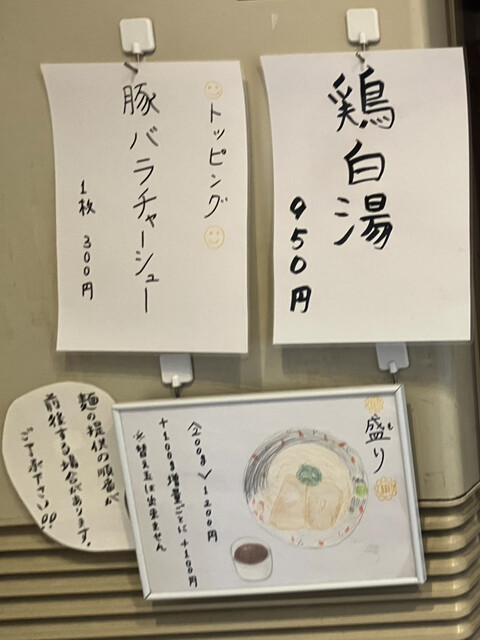 鶏白湯
950円
トッピング
豚バラチャーシュー
1枚 300円
盛り
も
200g 1200円
+100g増量ごとに+100円
※替え玉は出来ません
麺の提供の順番が
前後する場合があります。
ご了承下さい!!